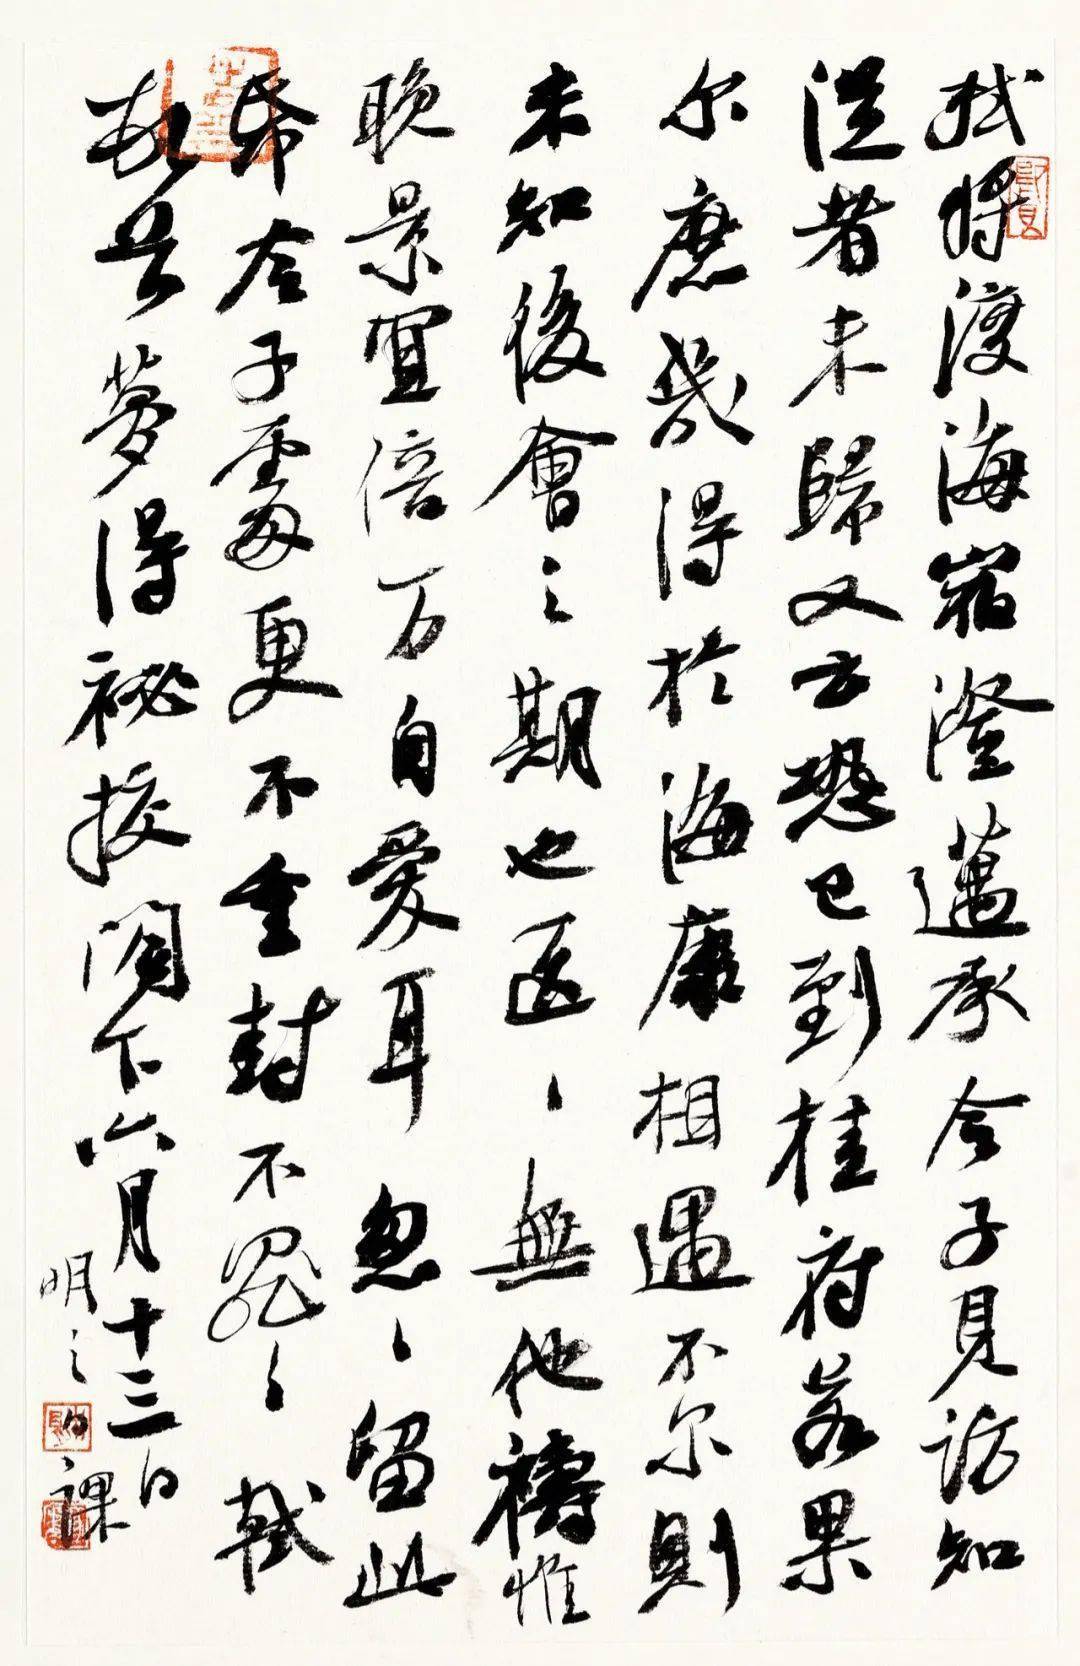 軾將渡海宿澄邁承令子見訪知
從者未歸又云恐已到桂府若果
尔庶幾得於海康相遇不尔則
未知後會之期也區〻無他禱惟
晚景宜倍万自愛耳忽〻留此
帋令子處更不重封不罪〻軾
頓首夢得祕校閣下六月十三日
明之日課